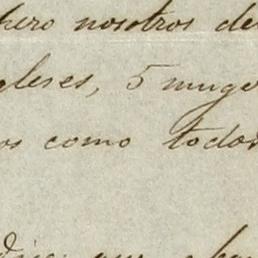 pero nosotros de
gleses, 5 muge
os como todos